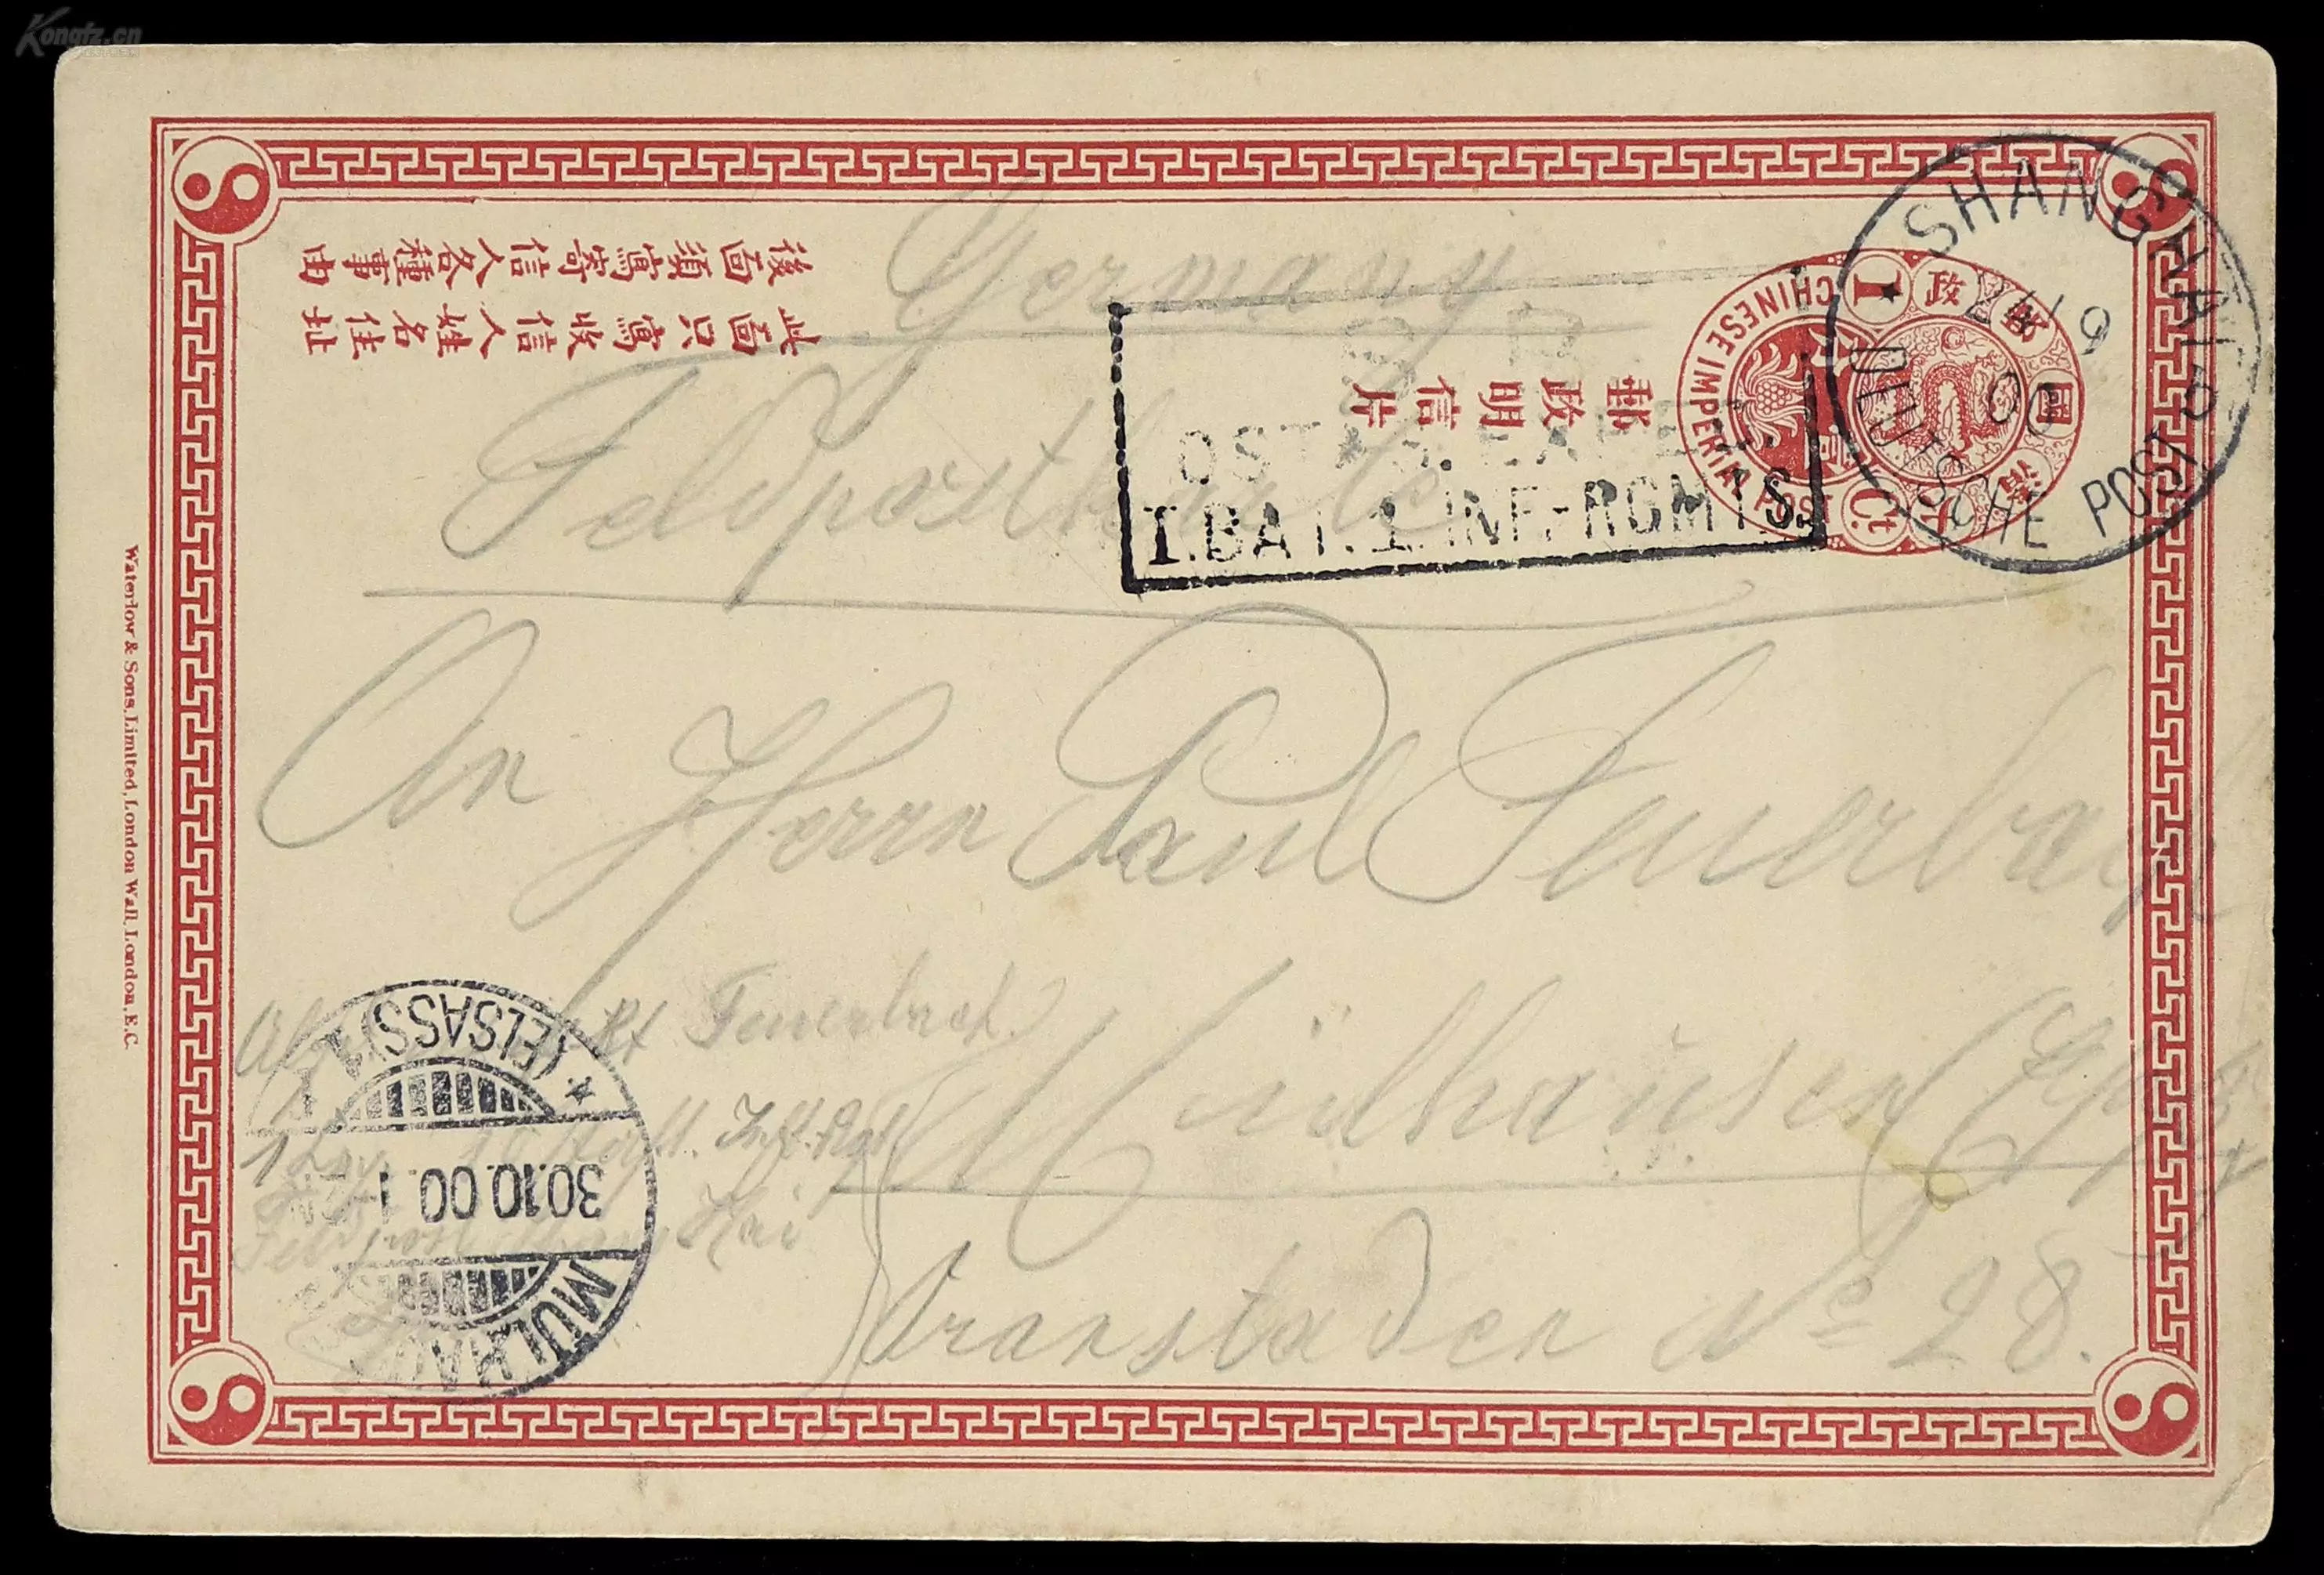 Kongfz.cn
Germany
Feldpostkarte
An Herrn Paul Feuerbach
Mülhausen
No 28.
Feuerbach
Inft. Rgt
SHANGHAI
24/9
00
DEUTSCHE POST
OSTAS. EXPED.
I. BAT. 1. INF.-RGMTS.
CHINESE IMPERIAL POST
1 Ct.
大清國郵政
郵政明信片
此面只寫收信人姓名住址
後面須寫寄信人各種事由
MÜLHAUSEN
(ELSASS) 1
30.10.00. 1
Waterlow & Sons, Limited, London Wall, London, E.C.